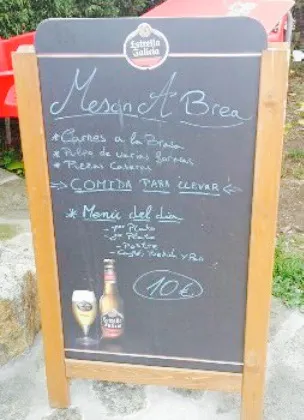 Estrella
Galicia
Mesón A Brea
* Carnes a la Brasa
* Pulpo de varias formas
* Pizzas Caseras
⇒ COMIDA PARA LLEVAR ⇐
* Menú del día
- 1er Plato
- 2º Plato
- Postre
- Café, Bebida y Pan
10€
Estrella
Galicia